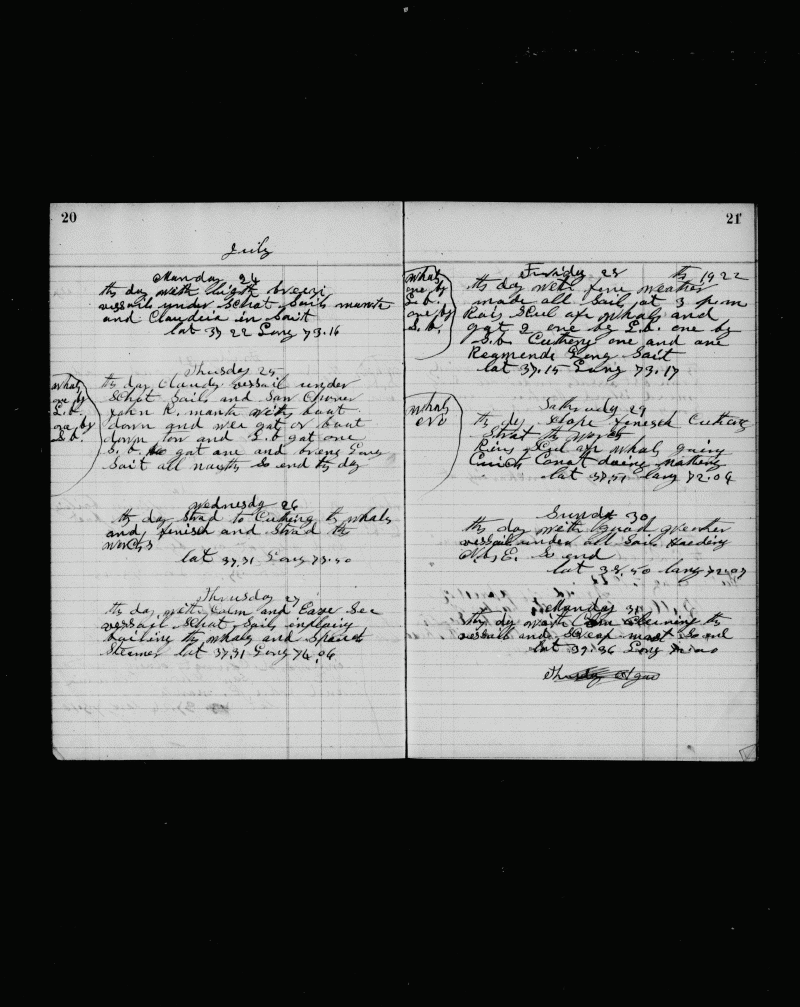 20
July
Monday 24
ths day with light breeri
vessails under Schat Sails
and Claudeia in Sait
lat 37 22 Long 73.16
Thusday 25
whals
one by
L.b.
one by
S.b.
ths day Claudy vessail under
Schat Sails and San Chover
John R. manta with boat
down and wee gat or boat
down tow and L.b gat one
S.b. gat one and breng Long
Sait all naigth So end ths day
Wednesday 26
ths day Strad to Cutheng ths whals
and finisch and Strad ths
worchs
lat 37.31 Long 73.50
Thrusday 27
ths day with Calm and Ease See
vessail Schat Sails
boiling ths whals and
Steamer lat 37.31 Long 74.04
21
whals
one by
L.b.
one by
S.b.
Friday 28 th 1922
ths day with fine weather
made all Sail at 3 p.m
Rais Scul afe whals and
gat 2 one by L.b. one by
S.b. Cutheng one and one
Long Sait
lat 37.15 Long 73.17
whals
Satruday 29
ths day finisch Cutheng
Strat ths worch
Scul afe whals going
Quick Conat doing Nattheng
lat 37.51 lang 72.04
Sund 30
ths day with Good Weather
vessail under all Sails Heading
N.b,E. So end
lat 38.50 lang 72.07
Monday 31
ths day with Calm Cleaning ths
vessails and Scrap mast So end
lat 39.36 Long